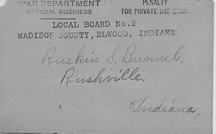 WAR DEPARTMENT
OFFICIAL BUSINESS
PENALTY
FOR PRIVATE USE
LOCAL BOARD No. 2
MADISON COUNTY, ELWOOD, INDIANA
Ruskin S. Bunnel.
Rushville.
Indiana.